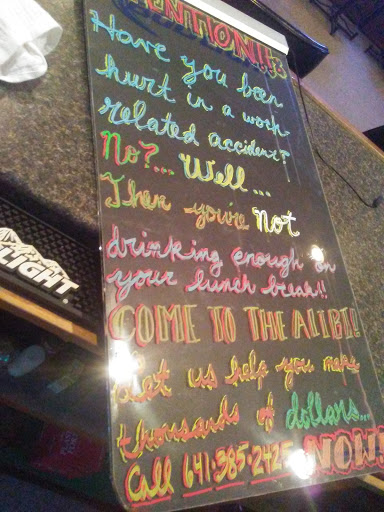 ATTENTION!!
Have you been
hurt in a work
related accident?
No?... Well...
Then you're Not
drinking enough on
your lunch break!!
COME TO THE ALIBI!
Let us help you make
thousands of dollars...
Call 641-385-2425 NOW!
LIGHT